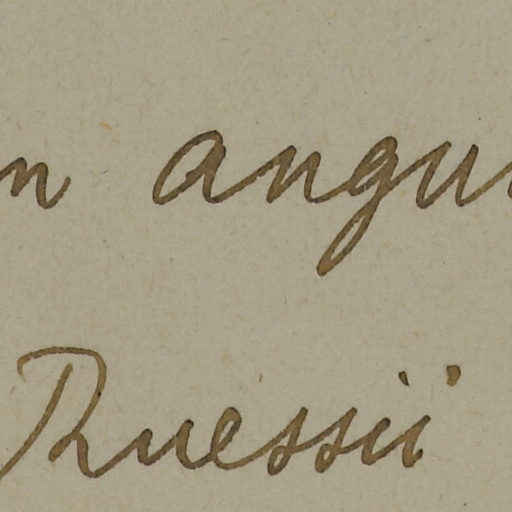 n angu
Ruessii